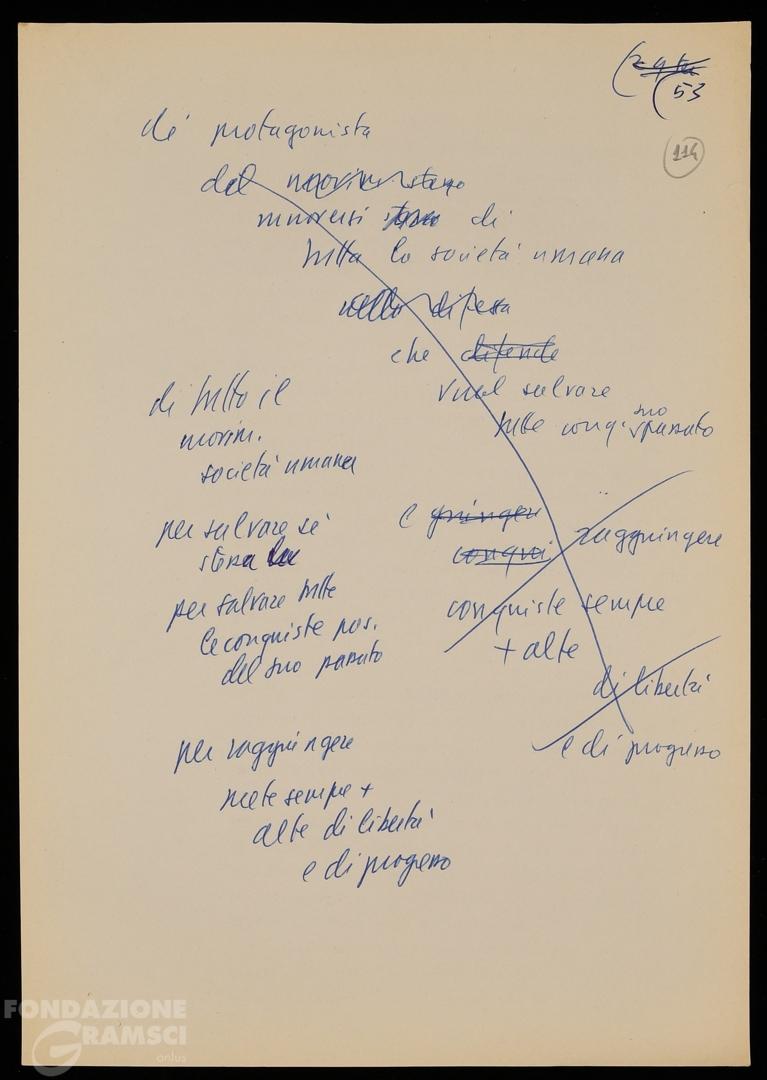 53
114
di protagonista
del movim stesso
muoversi stesso di
tutta la società umana
nella difesa
che difende
vuol salvare
tutte conq. suo passato
di tutto il
movim.
società umana
per salvare sé
stessa
per salvare tutte
le conquiste pos.
del suo passato
e spingere
conqui raggiungere
conquiste sempre
+ alte
di libertà
e di progresso
per raggiungere
mete sempre +
alte di libertà
e di progresso
FONDAZIONE
GRAMSCI
onlus